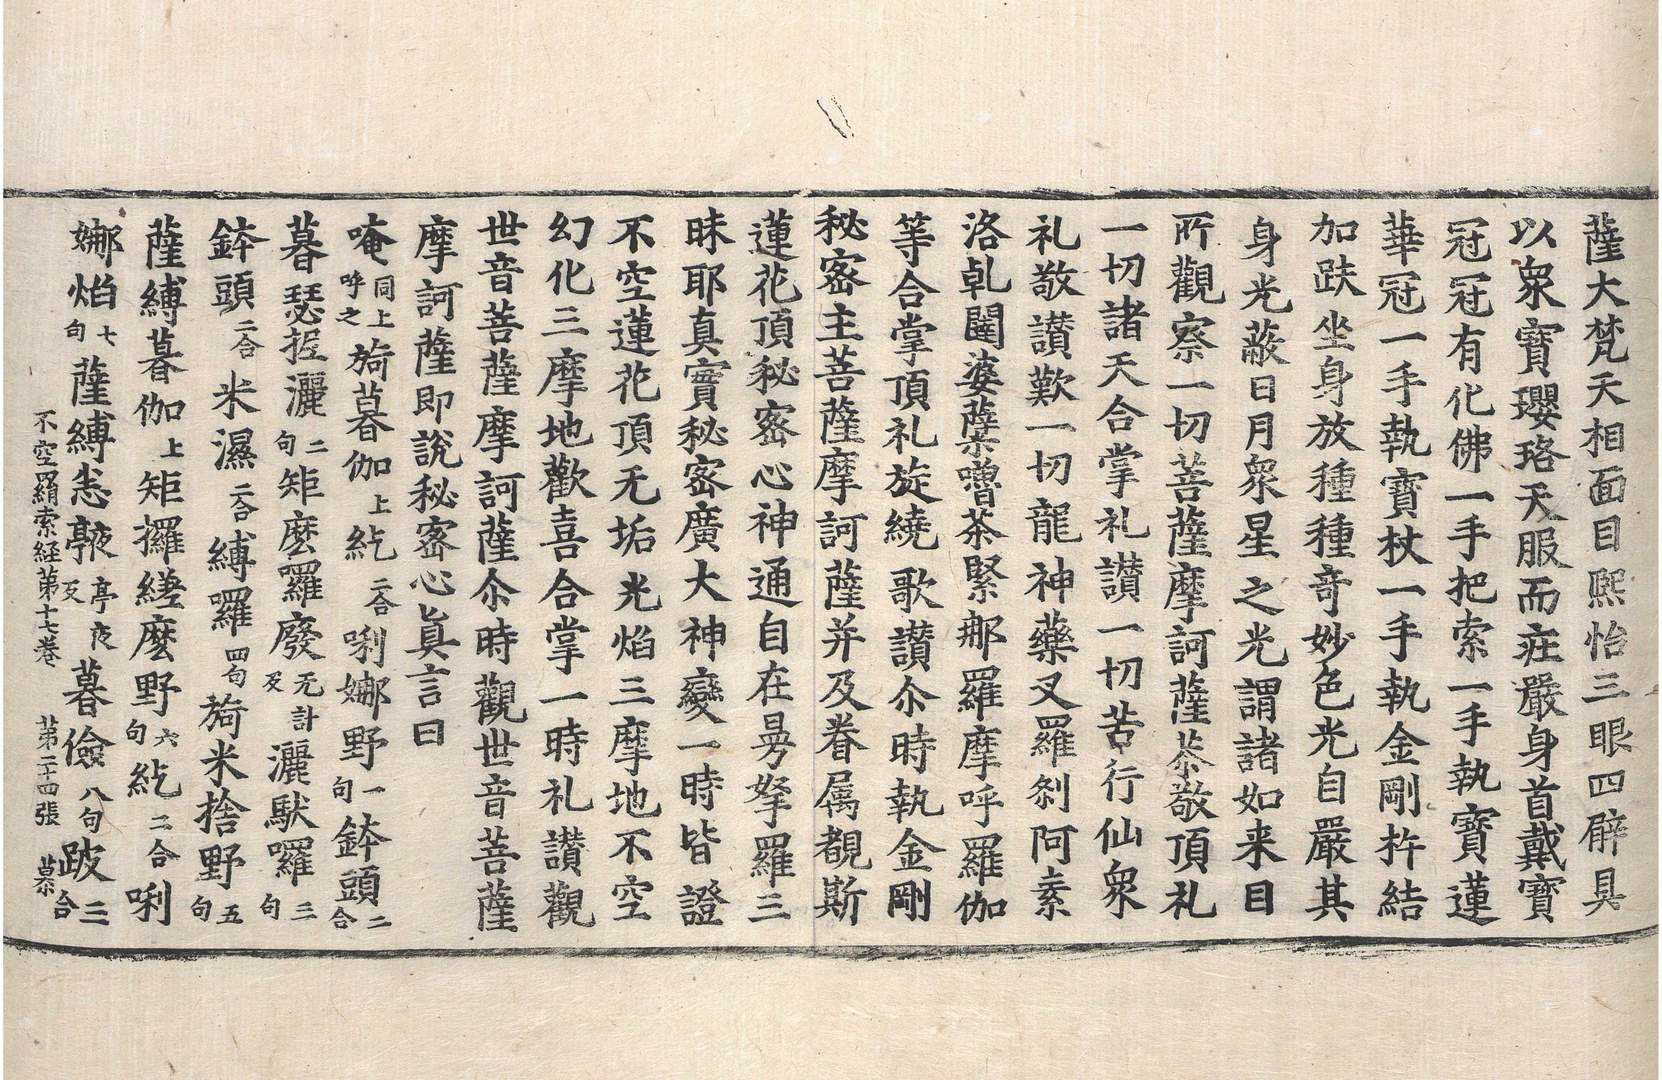 薩大梵天相面目熙怡三眼四臂具
以衆寶瓔珞天服而莊嚴身首戴寶
冠冠有化佛一手把索一手執寶蓮
華冠一手執寶杖一手執金剛杵結
加趺坐身放種種奇妙色光自嚴其
身光蔽日月衆星之光謂諸如来目
所觀察一切菩薩摩訶薩恭敬頂礼
一切諸天合掌礼讃一切苦行仙衆
礼敬讃歎一切龍神藥叉羅剎阿素
洛乹闥婆蘖嚕荼緊那羅摩呼羅伽
等合掌頂礼旋繞歌讃尒時執金剛
秘密主菩薩摩訶薩并及眷属覩斯
蓮花頂秘密心神通自在旃拏羅三
昧耶真實秘密廣大神變一時皆證
不空蓮花頂无垢光焰三摩地不空
幻化三摩地歡喜合掌一時礼讃觀
世音菩薩摩訶薩尒時觀世音菩薩
摩訶薩即說秘密心真言曰
唵同上呼之旖暮伽上紇二合唎娜野一句鉢頭二合
暮瑟抳灑二句矩麽羅廢无計反灑馱囉三句
鉢頭二合米濕二合縛囉四句旖米捨野五句
薩縛暮伽上矩攞縒麽野六句紇二合唎
娜焰七句薩縛恚𠅘夜亭夜反暮儉八句跛三合
不空羂索経第十七卷　第二十四張　慕